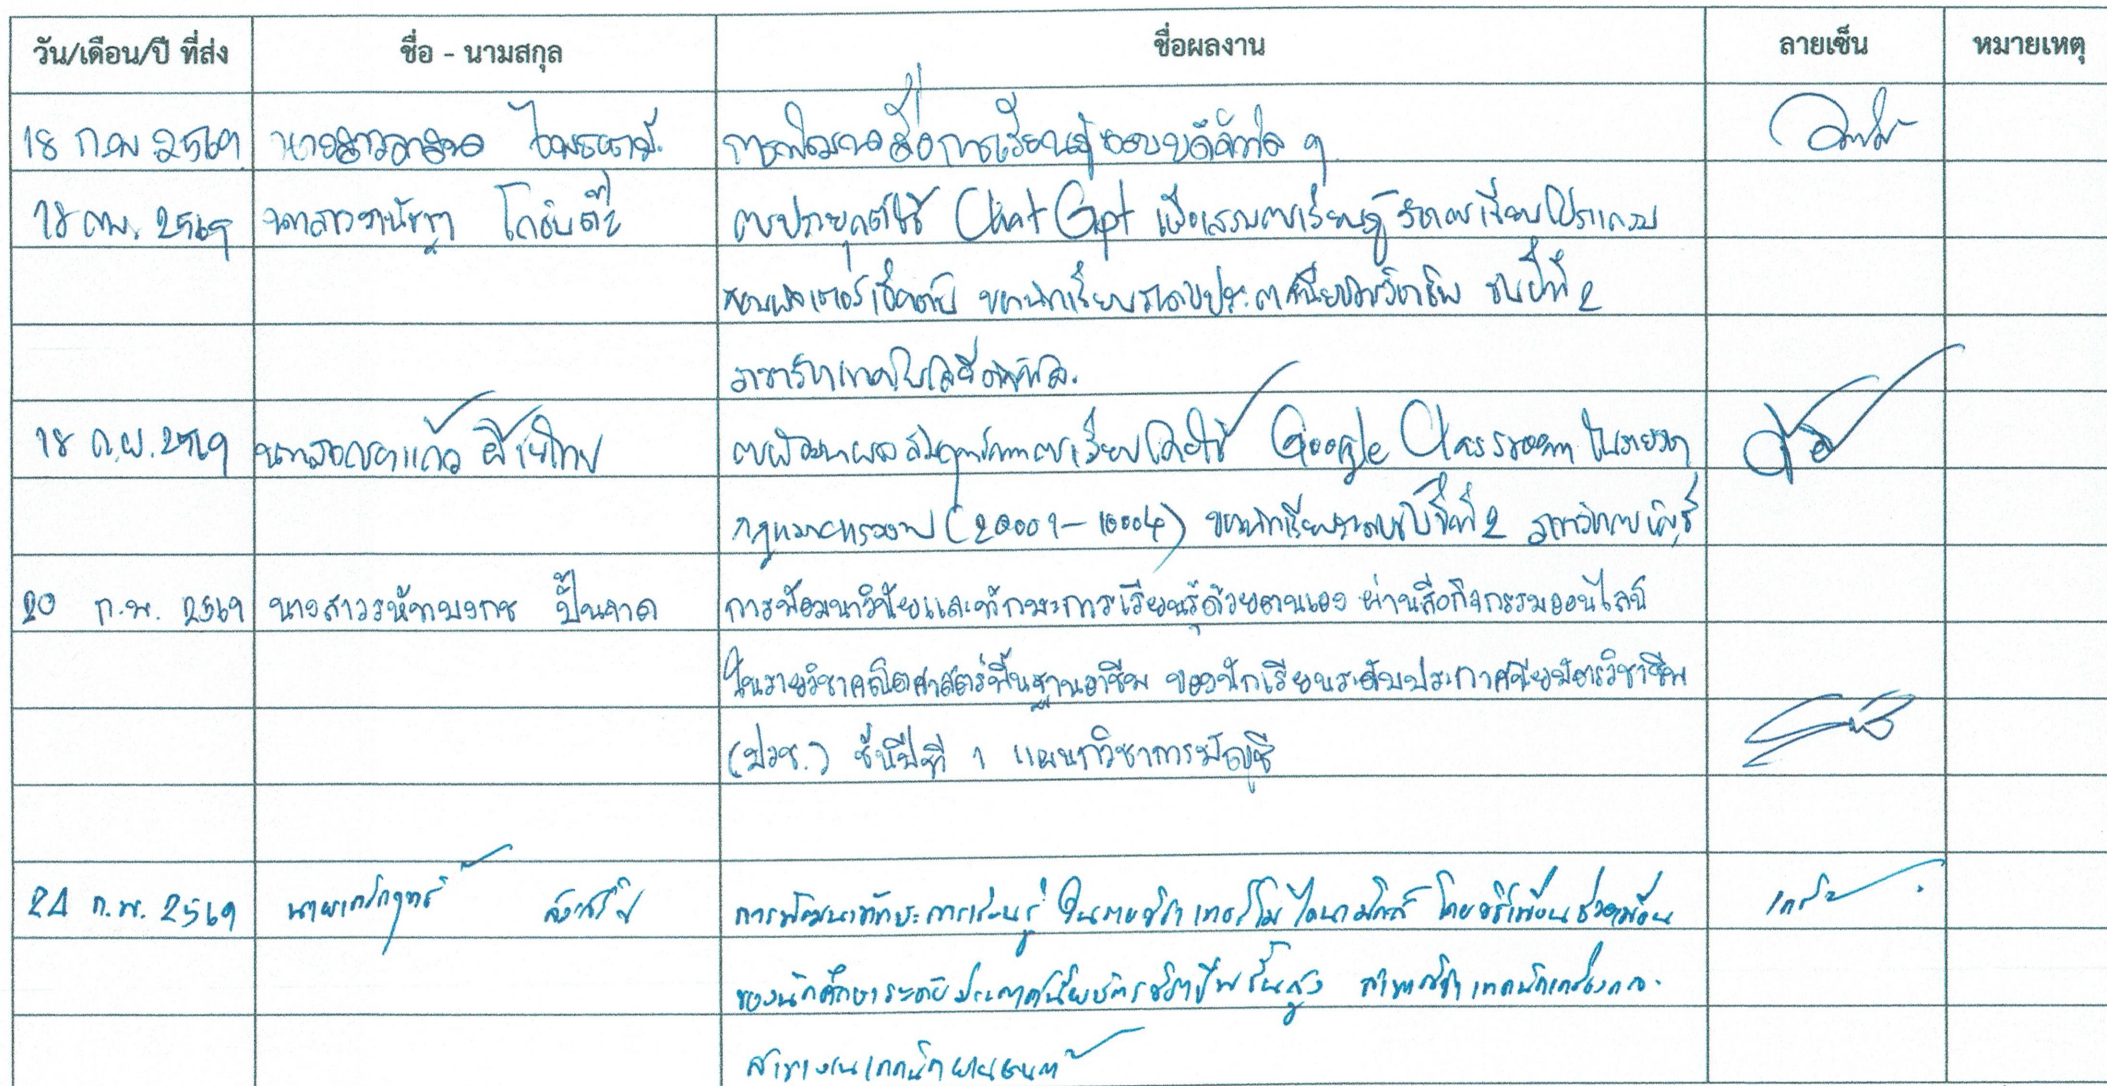 วัน/เดือน/ปี ที่ส่ง ชื่อ - นามสกุล ชื่อผลงาน ลายเซ็น หมายเหตุ
18 ก.พ 2569 การพัฒนาสื่อการเรียนรู้แบบดิจิทัล ๆ
18 กพ. 2569 นางสาว การประยุกต์ใช้ Chat Gpt เพื่อเสริมการเรียนรู้ วิชาการเขียนโปรแกรม
ของนักเรียนระดับประกาศนียบัตรวิชาชีพ ชั้นปีที่ 2
สาขาวิชาเทคโนโลยีดิจิทัล.
18 ก.พ. 2569 การพัฒนาผลสัมฤทธิ์ทางการเรียนโดยใช้ Google Classroom ในรายวิชา
กฎหมายแรงงาน (20001-1004) ของนักเรียนระดับชั้นปีที่ 2 สาขาวิชาการบัญชี
20 ก.พ. 2569 นางสาวรหัทบงกช ปั้นจาด การพัฒนาวินัยและทักษะการเรียนรู้ด้วยตนเอง ผ่านสื่อกิจกรรมออนไลน์
ในรายวิชาคณิตศาสตร์พื้นฐานอาชีพ ของนักเรียนระดับประกาศนียบัตรวิชาชีพ
(ปวช.) ชั้นปีที่ 1 แผนกวิชาการบัญชี
24 ก.พ. 2569 การพัฒนาทักษะการเรียนรู้ ในรายวิชา เทอร์โมไดนามิกส์ โดยวิธีเพื่อนช่วยเพื่อน
ของนักศึกษาระดับประกาศนียบัตรวิชาชีพชั้นสูง สาขาวิชาเทคนิคเครื่องกล
สาขางานเทคนิคยานยนต์